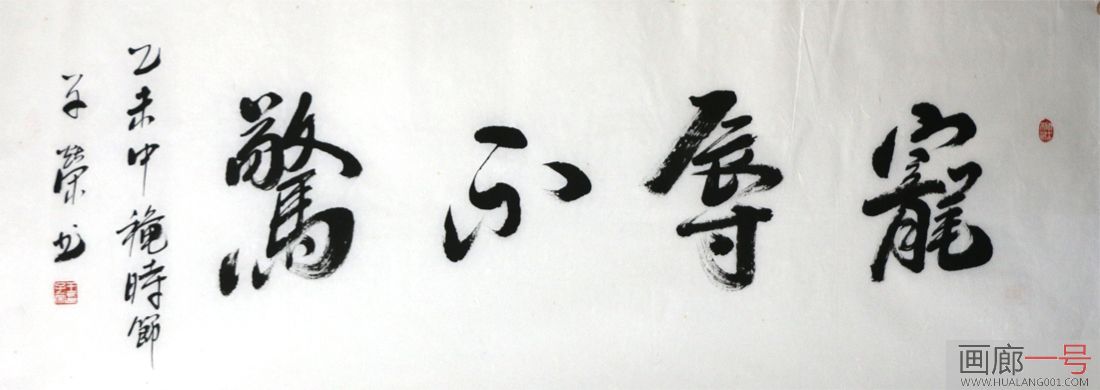 寵辱不驚
乙未中穐時節
子榮书
画廊一号
WWW.HUALANG001.COM